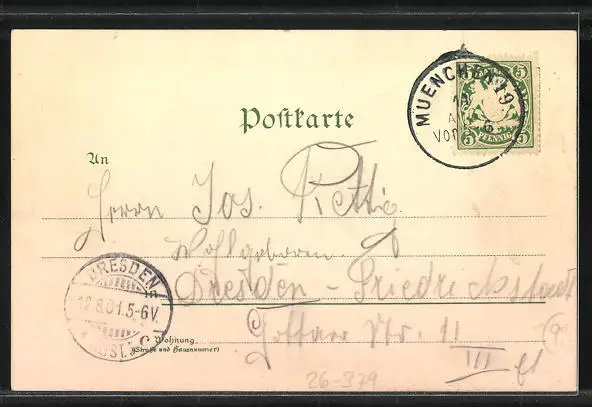 MUENCHEN 19
VOR 6
5 5
5 PFENNIG 5
Postkarte
An
Herrn Jos.
Wohlgeboren
DRESDEN
Dresden - Friedrichstadt
12.8.01.5-6V.
Str. 11
Wohnung.
(Straße und Hausnummer)
III
26-379